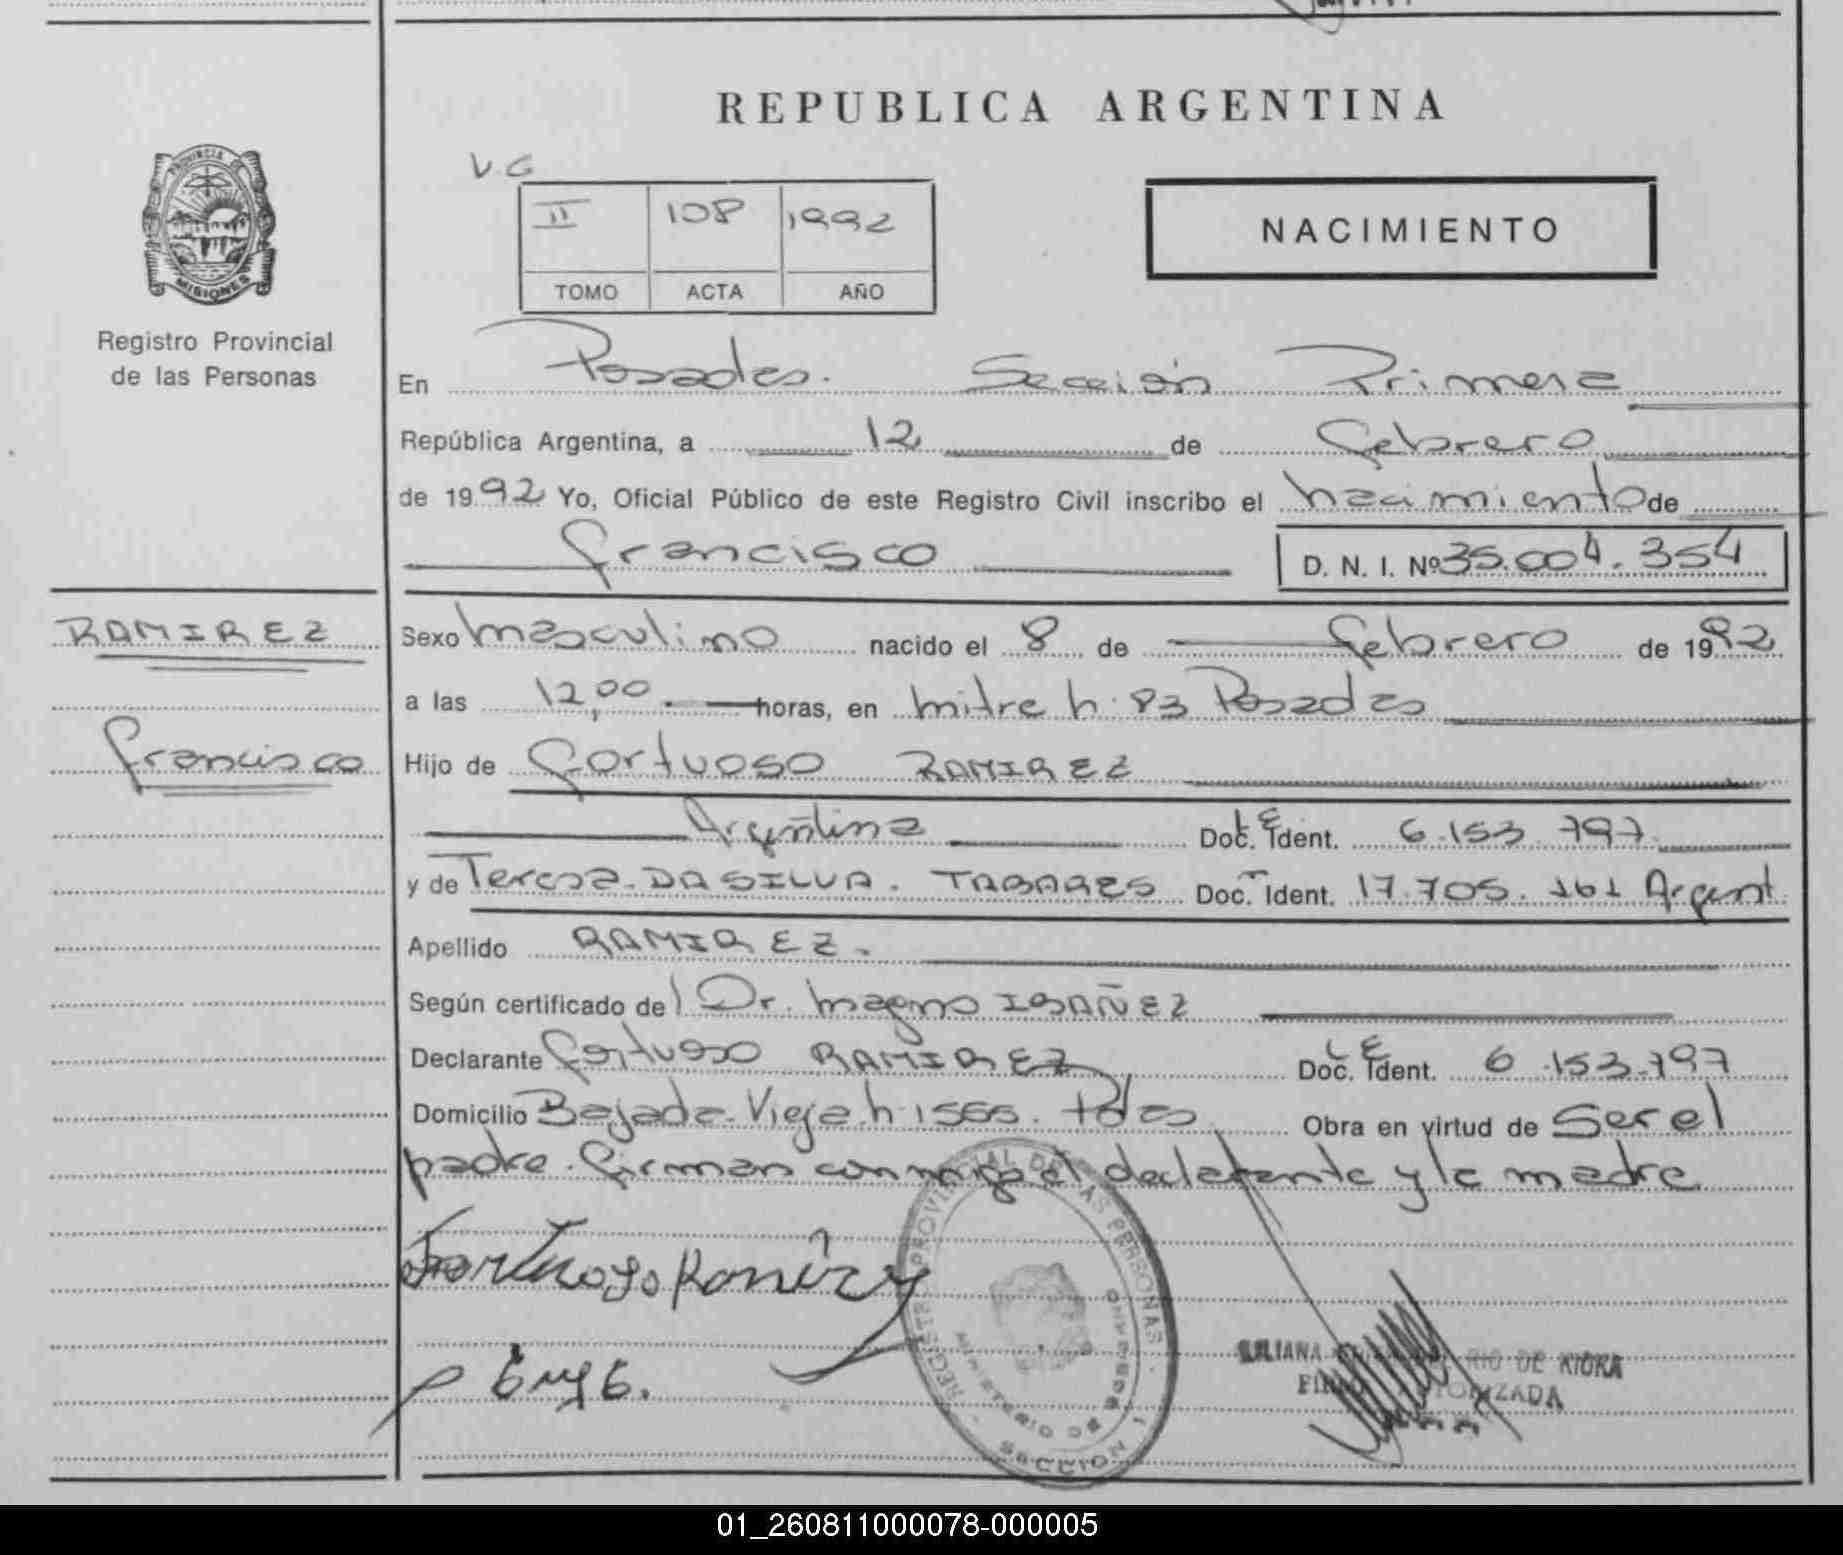 REPUBLICA ARGENTINA
PROVINCIA DE MISIONES
Registro Provincial
de las Personas
V.G
II 108 1992
TOMO ACTA AÑO
NACIMIENTO
En Posadas. Sección Primera
República Argentina, a 12 de febrero
de 1992 Yo, Oficial Público de este Registro Civil inscribo el nacimiento de
Francisco D. N. I. Nº 35.004.354
RAMIREZ
Francisco
Sexo masculino nacido el 8 de febrero de 1992
a las 12,00 horas, en mitre h. 83 Posadas
Hijo de Fortuoso RAMIREZ
Argentina Doc. Ident. L E 6.153.797
y de Teresa DA SILVA. TABARES Doc. Ident. 17.705.161 Argent
Apellido RAMIREZ.
Según certificado del Dr. magno IBAÑEZ
Declarante Fortuoso RAMIREZ Doc. Ident. L E 6.153.797
Domicilio Bajada Vieja h 1566. Pdas Obra en virtud de Ser el
padre. firman conmigo el declarante y la madre
Fortuoso Ramirez
REGISTRO PROVINCIAL DE LAS PERSONAS
MINISTERIO DE GOBIERNO
SECCION 1
LILIANA RIO DE KIORA
FIRMA AUTORIZADA
01_260811000078-000005